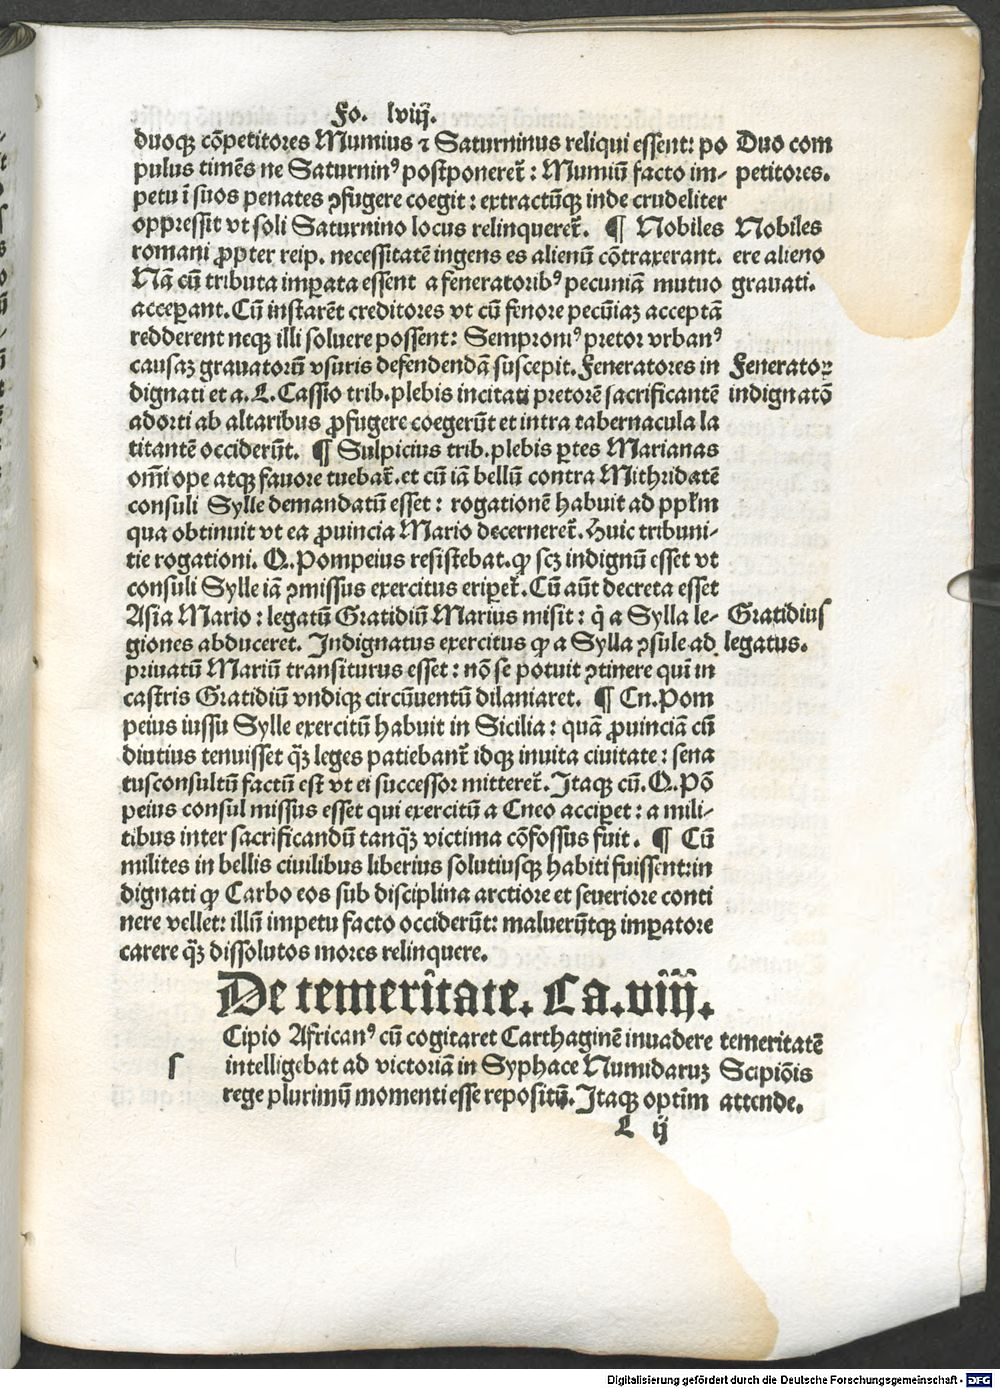 Fo. lviij.
duoqꝫ cõpetitores Mumius ⁊ Saturninus reliqui essent: po
pulus timẽs ne Saturninꝰ postponeret̃: Mumiũ facto im-
petu ĩ suos penates ꝯfugere coegit: extractũqꝫ inde crudeliter
oppressit vt soli Saturnino locus relinqueret̃. ¶ Nobiles
romani ꝓpter reip. necessitatẽ ingens es alienũ cõtraxerant.
Nã cũ tributa imꝑata essent a feneratoribꝰ pecuniã mutuo
acceꝑant. Cũ instarẽt creditores vt cũ fenore pecũiaꝫ acceptã
redderent neqꝫ illi soluere possent: Semproniꝰ pretor vrbanꝰ
causaꝫ grauatorũ vsuris defendendã suscepit. Feneratores in
dignati et a. L. Cassio trib. plebis incitati pretorẽ sacrificantẽ
adorti ab altaribus ꝓfugere coegerũt et intra tabernacula la
titantẽ occiderũt. ¶ Sulpicius trib. plebis ꝑtes Marianas
om̃i ope atqꝫ fauore tuebat̃. et cũ iã bellũ contra Mithridatẽ
consuli Sylle demandatũ esset: rogationẽ habuit ad ppľm
qua obtinuit vt ea ꝓuincia Mario decerneret̃. Huic tribuni-
tie rogationi. Q. Pompeius resistebat. ꝙ scꝫ indignũ esset vt
consuli Sylle iã ꝯmissus exercitus eriꝑet̃. Cũ aũt decreta esset
Asia Mario: legatũ Gratidiũ Marius misit: q̃ a Sylla le-
giones abduceret. Indignatus exercitus ꝙ a Sylla ꝯsule ad
priuatũ Mariũ transiturus esset: nõ se potuit ꝯtinere quĩ in
castris Gratidiũ vndiqꝫ circũuentũ dilaniaret. ¶ Cn. Pom
peius iussu Sylle exercitũ habuit in Sicilia: quã ꝓuinciã cũ
diutius tenuisset q̃ꝫ leges patiebant̃ idqꝫ inuita ciuitate: sena
tusconsultũ factũ est vt ei successor mitteret̃. Itaqꝫ cũ. Q. Põ
peius consul missus esset qui exercitũ a Cneo acciꝑet: a mili-
tibus inter sacrificandũ tanq̃ꝫ victima cõfossus fuit. ¶ Cũ
milites in bellis ciuilibus liberius solutiusqꝫ habiti fuissent: in
dignati ꝙ Carbo eos sub disciplina arctiore et seueriore conti
nere vellet: illũ impetu facto occiderũt: maluerũtqꝫ imꝑatore
carere q̃ꝫ dissolutos mores relinquere.
Duo com
petitores.
Nobiles
ere alieno
grauati.
Feneratoꝝ
indignatõ
Gratidius
legatus.
De temeritate. Ca. viij.
s
Cipio Africanꝰ cũ cogitaret Carthaginẽ inuadere
intelligebat ad victoriã in Syphace Numidaruꝫ
rege plurimũ momenti esse repositũ. Itaqꝫ optim̃
temeritatẽ
Scipiõis
attende.
L ij
Digitalisierung gefördert durch die Deutsche Forschungsgemeinschaft - DFG